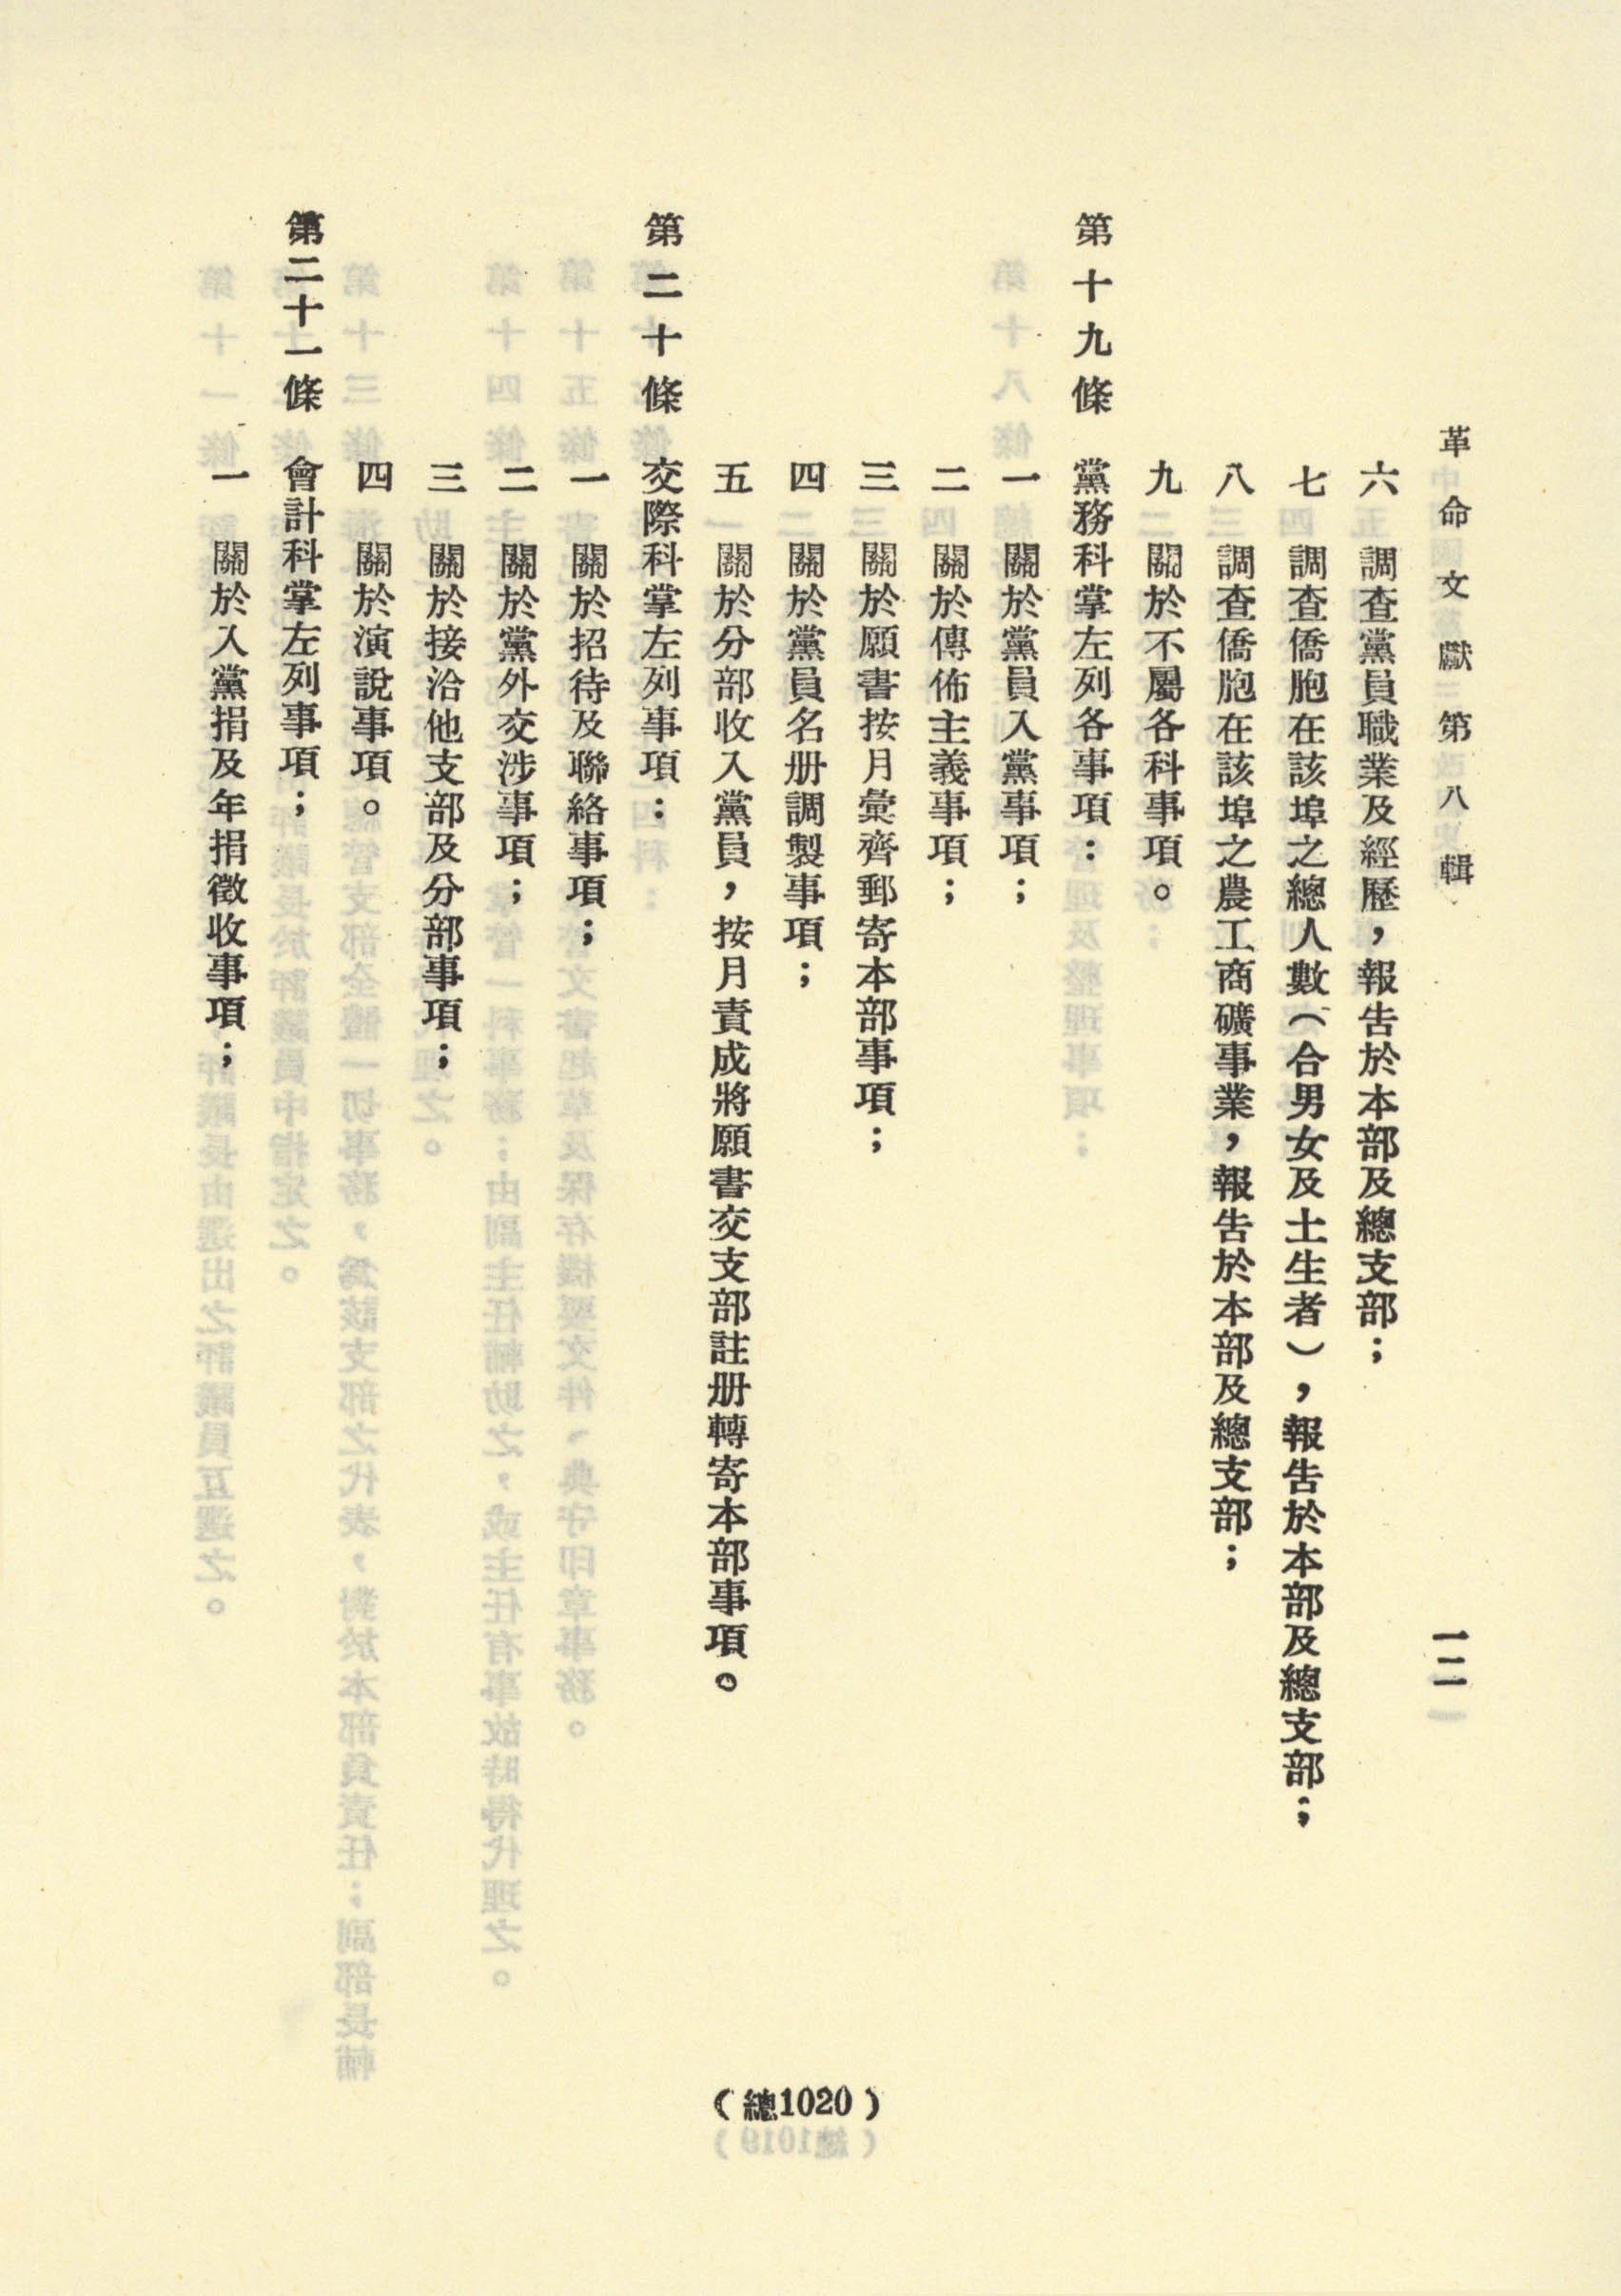 革命文獻 第八輯
一二
六 調查黨員職業及經歷，報告於本部及總支部；
七 調查僑胞在該埠之總人數（合男女及土生者），報告於本部及總支部；
八 調查僑胞在該埠之農工商礦事業，報告於本部及總支部；
九 關於不屬各科事項。
第十九條 黨務科掌左列各事項：
一 關於黨員入黨事項；
二 關於傳佈主義事項；
三 關於願書按月彙齊郵寄本部事項；
四 關於黨員名册調製事項；
五 關於分部收入黨員，按月責成將願書交支部註册轉寄本部事項。
第二十條 交際科掌左列事項：
一 關於招待及聯絡事項；
二 關於黨外交涉事項；
三 關於接洽他支部及分部事項；
四 關於演說事項。
第二十一條 會計科掌左列事項；
一 關於入黨捐及年捐徵收事項；
（總1020）